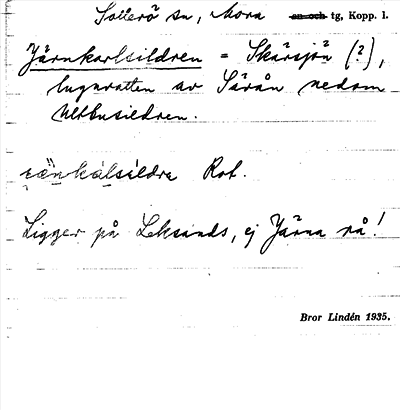 Sollerö sn, Mora sn och tg, Kopp. l.
Järnkarlsildren = Skärsjön (?),
lugnvatten av Särån nedom
Ulvbusildren.
Rot.
Ligger på Leksands, ej Järna rå!
Bror Lindén 1935.